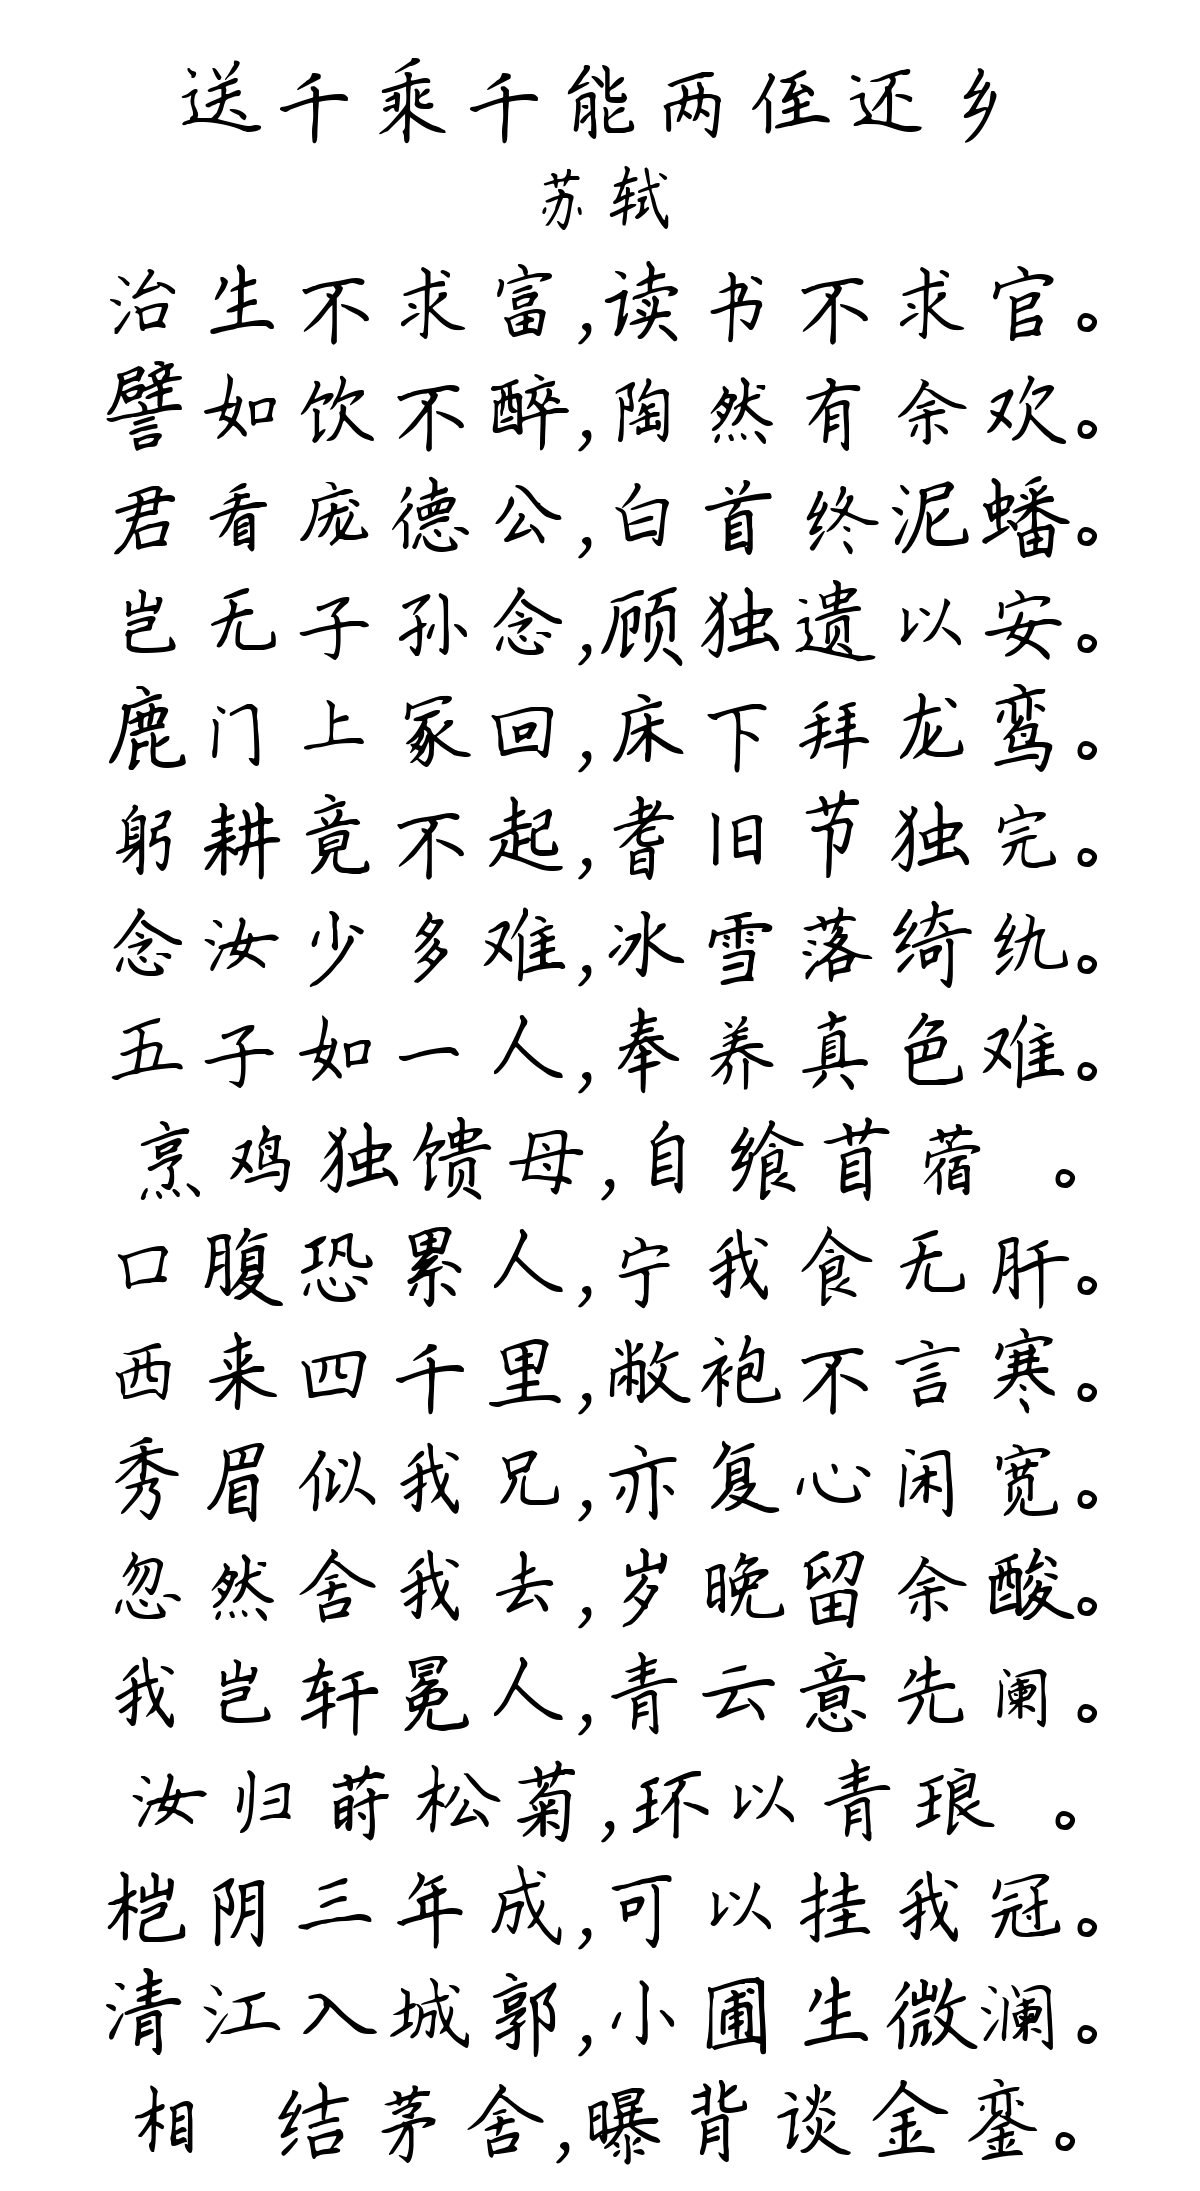 送千乘千能两侄还乡
苏轼
治生不求富,读书不求官。
譬如饮不醉,陶然有余欢。
君看庞德公,白首终泥蟠。
岂无子孙念,顾独遗以安。
鹿门上冢回,床下拜龙鸾。
躬耕竟不起,耆旧节独完。
念汝少多难,冰雪落绮纨。
五子如一人,奉养真色难。
烹鸡独馈母,自飨苜蓿 。
口腹恐累人,宁我食无肝。
西来四千里,敝袍不言寒。
秀眉似我兄,亦复心闲宽。
忽然舍我去,岁晚留余酸。
我岂轩冕人,青云意先阑。
汝归莳松菊,环以青琅 。
桤阴三年成,可以挂我冠。
清江入城郭,小圃生微澜。
相 结茅舍,曝背谈金銮。